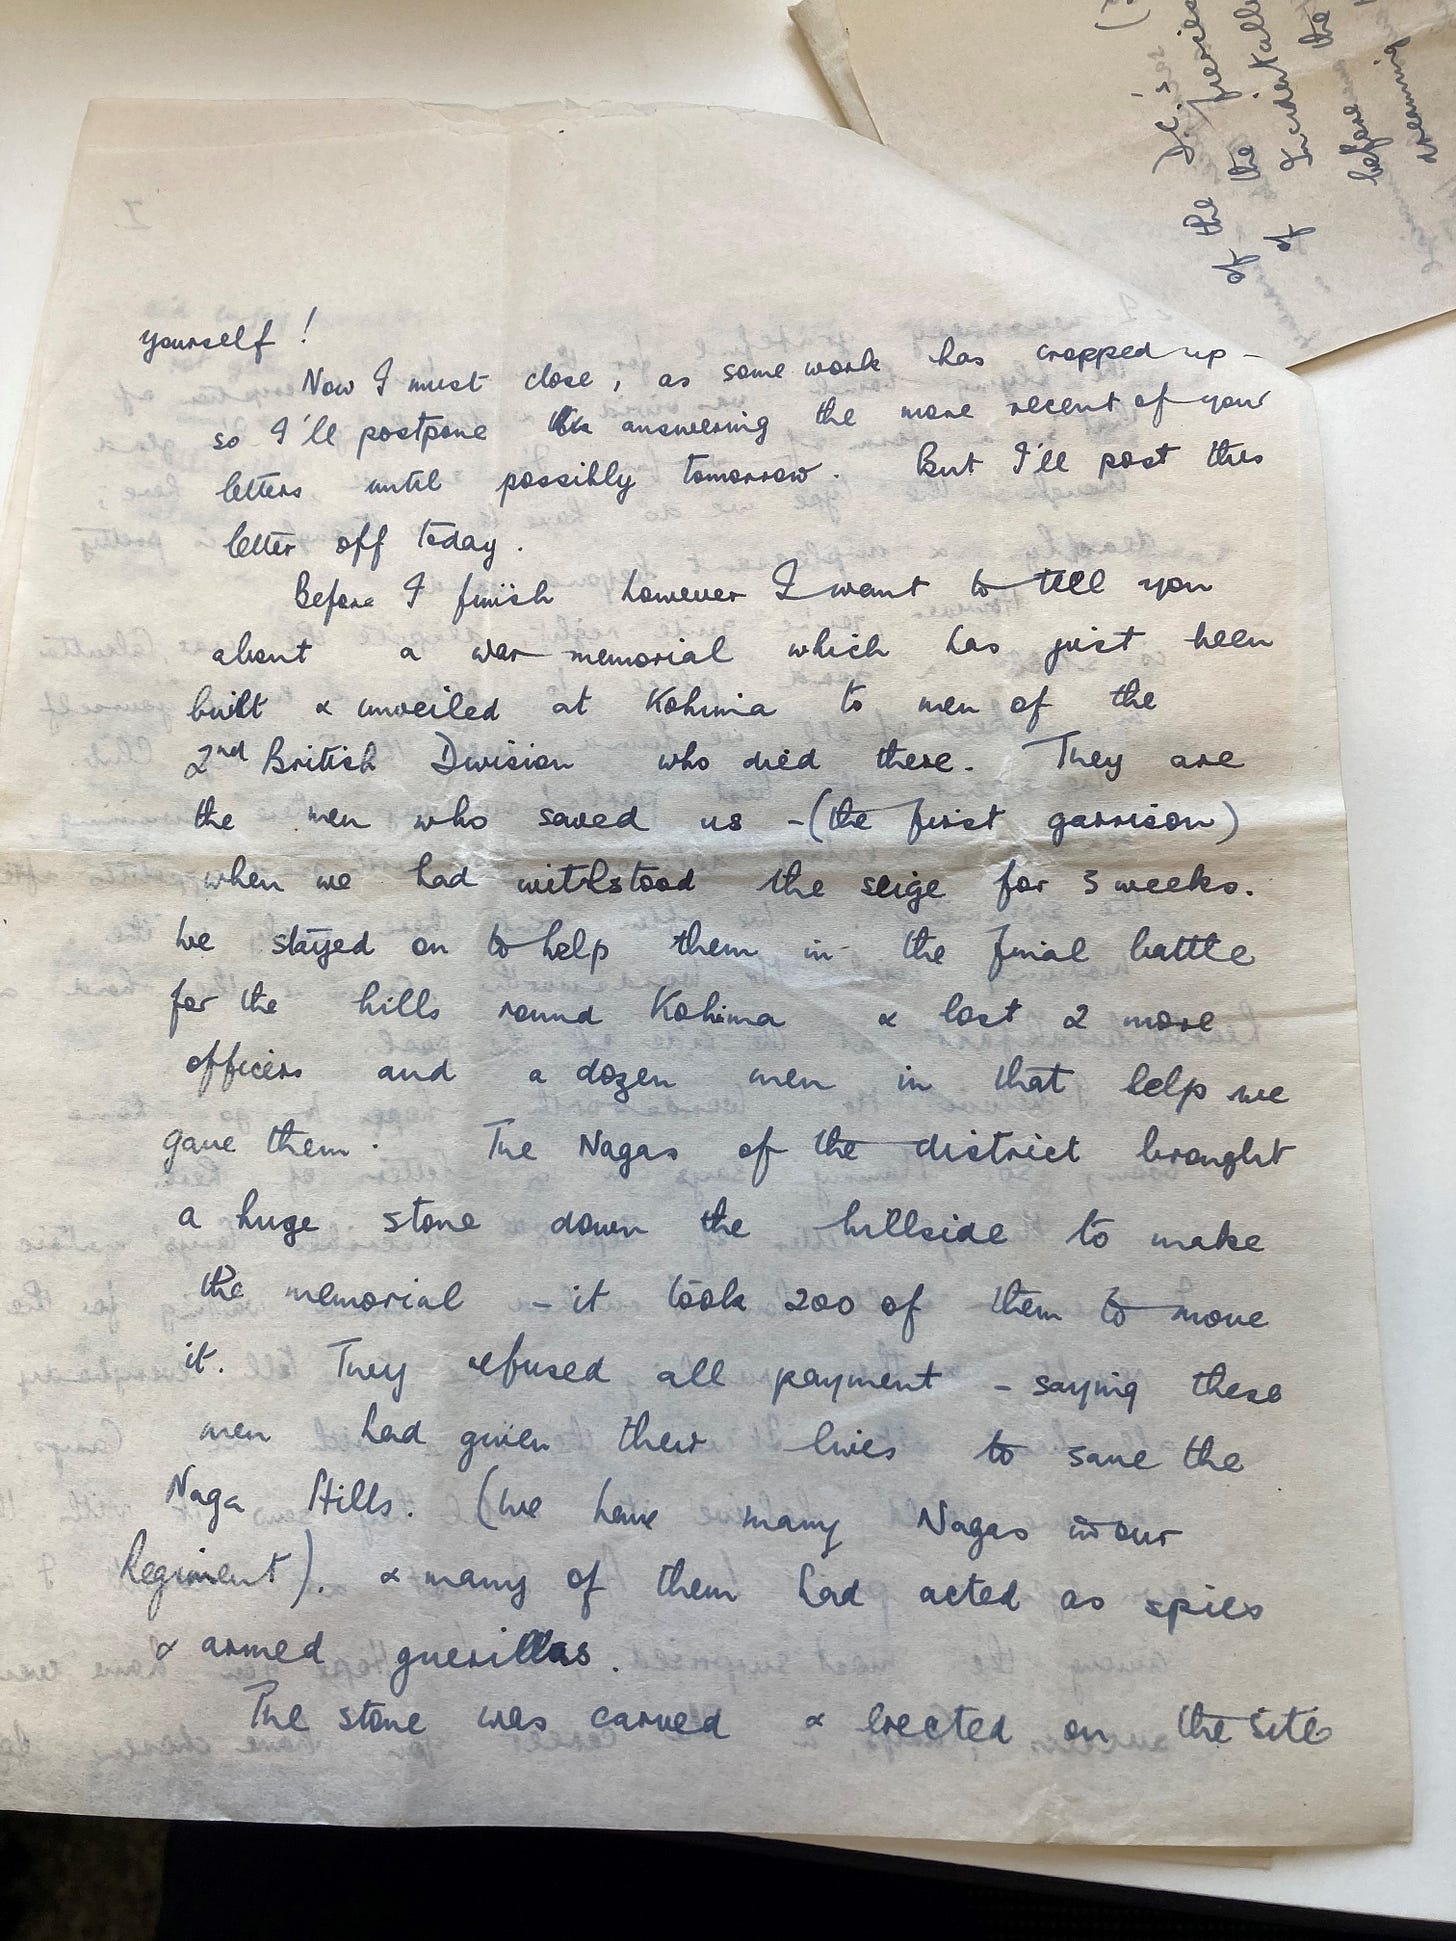 yourself!
Now I must close, as some work has cropped up -
so I'll postpone answering the more recent of your
letters until possibly tomorrow. But I'll post this
letter off today.
Before I finish however I want to tell you
about a war memorial which has just been
built & unveiled at Kohima to men of the
2nd British Division who died there. They are
the men who saved us - (the first garrison)
when we had withstood the seige for 3 weeks.
We stayed on to help them in the final battle
for the hills round Kohima & lost 2 more
officers and a dozen men in that help we
gave them. The Nagas of the district brought
a huge stone down the hillside to make
the memorial - it took 200 of them to move
it. They refused all payment - saying these
men had given their lives to save the
Naga Hills. (We have many Nagas in our
Regiment). & many of them had acted as spies
& armed guerillas.
The stone was carved & erected on the site
of the D.C.'s
of the
of Incidentally
before the